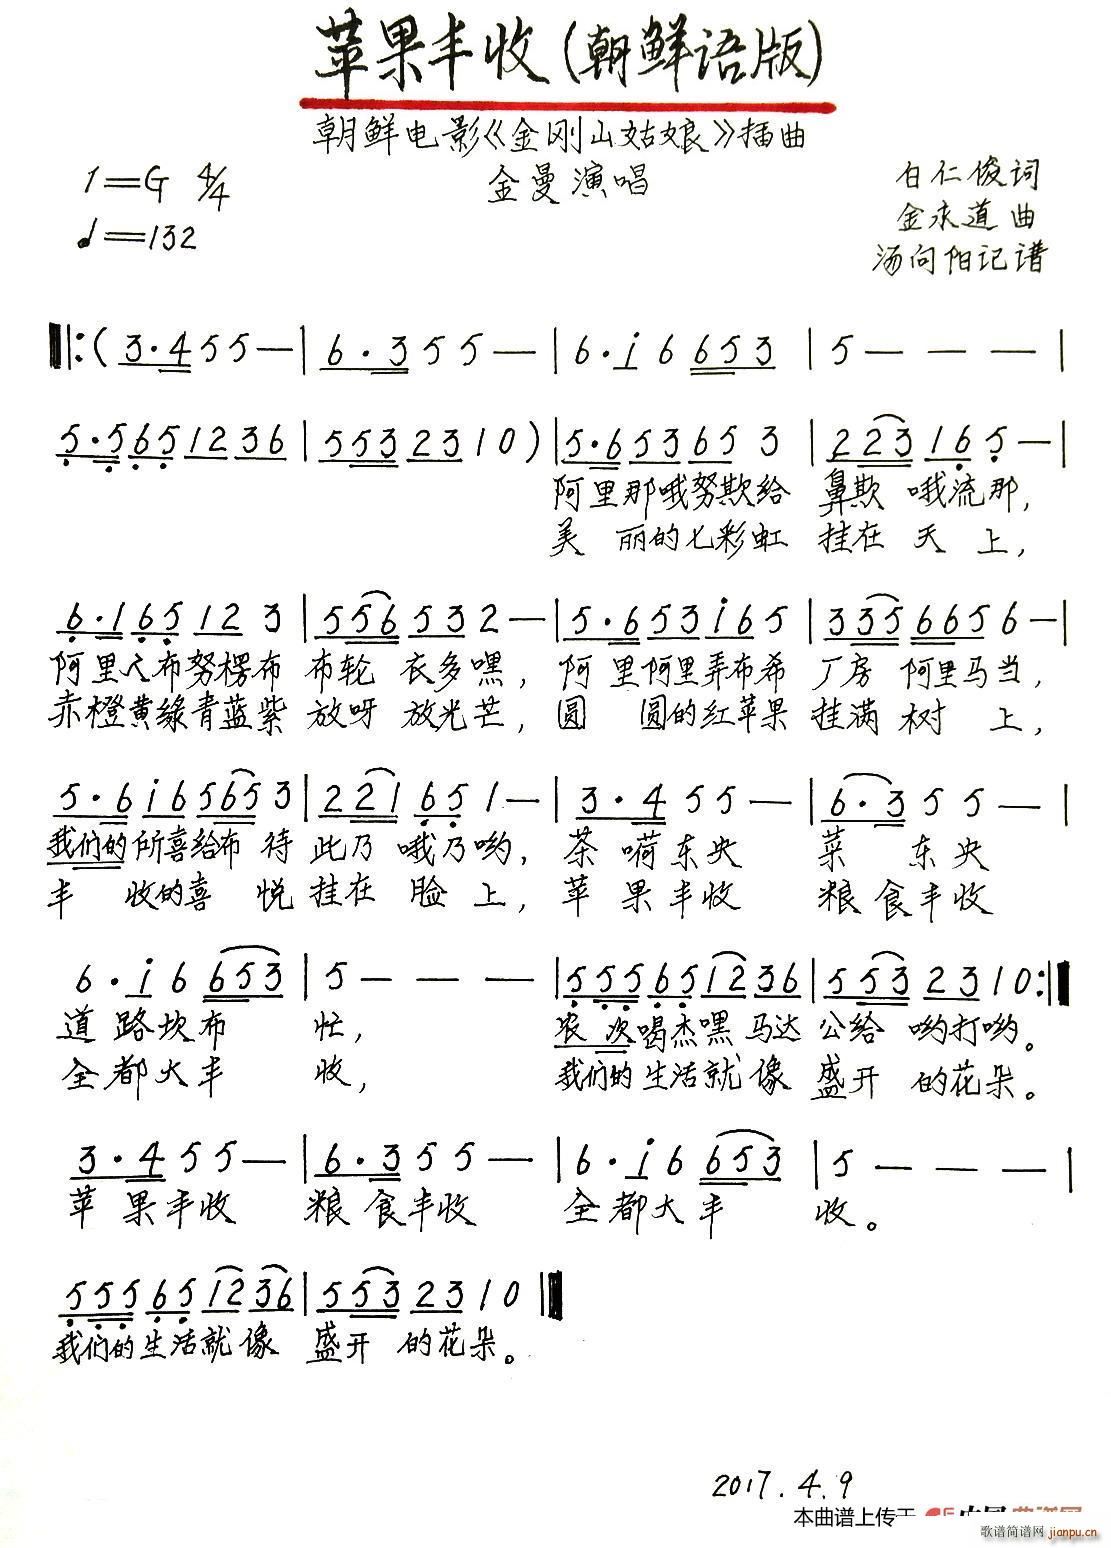 苹果丰收(朝鲜语版)
朝鲜电影《金刚山姑娘》插曲
1=G 4/4 金曼演唱 白仁俊词
♩=132 金永道曲
汤向阳记谱
‖:( 3·4 5 5 — | 6·3 5 5 — | 6·i 6 653 | 5 — — — |
5·565 1236 | 553 23 1 0 ) | 5·65365 3 | 223 165 — |
阿里那哦努欺给 鼻欺 哦流那,
美 丽的七彩虹 挂在 天 上,
6·165 12 3 | 556 532 — | 5·653i65 | 335 6656 — |
阿里人布努楞布 布轮 衣多嘿, 阿里阿里弄布希 厂房 阿里马当,
赤橙黄绿青蓝紫 放呀 放光芒, 圆 圆的红苹果 挂满 树 上,
5·6i65653 | 221 651 — | 3·4 5 5 — | 6·3 5 5 — |
我们的所喜给布 待 此乃 哦乃哟, 茶嗬东央 菜 东央
丰 收的喜 悦 挂在 脸 上, 苹 果丰收 粮食丰收
6·i 6 653 | 5 — — — | 55565 1236 | 553 23 1 0 :‖
道路坎布 忙, 农次喝杰嘿马达 公给 哟打哟。
全都大丰 收, 我们的生活就像 盛开 的花朵。
3·4 5 5 — | 6·3 5 5 — | 6·i 6 653 | 5 — — — |
苹 果丰收 粮食丰收 全都大丰 收。
55565 1236 | 553 23 1 0 ‖
我们的生活就像 盛开 的花朵。
2017.4.9
本曲谱上传于
歌谱简谱网 jianpu.cn